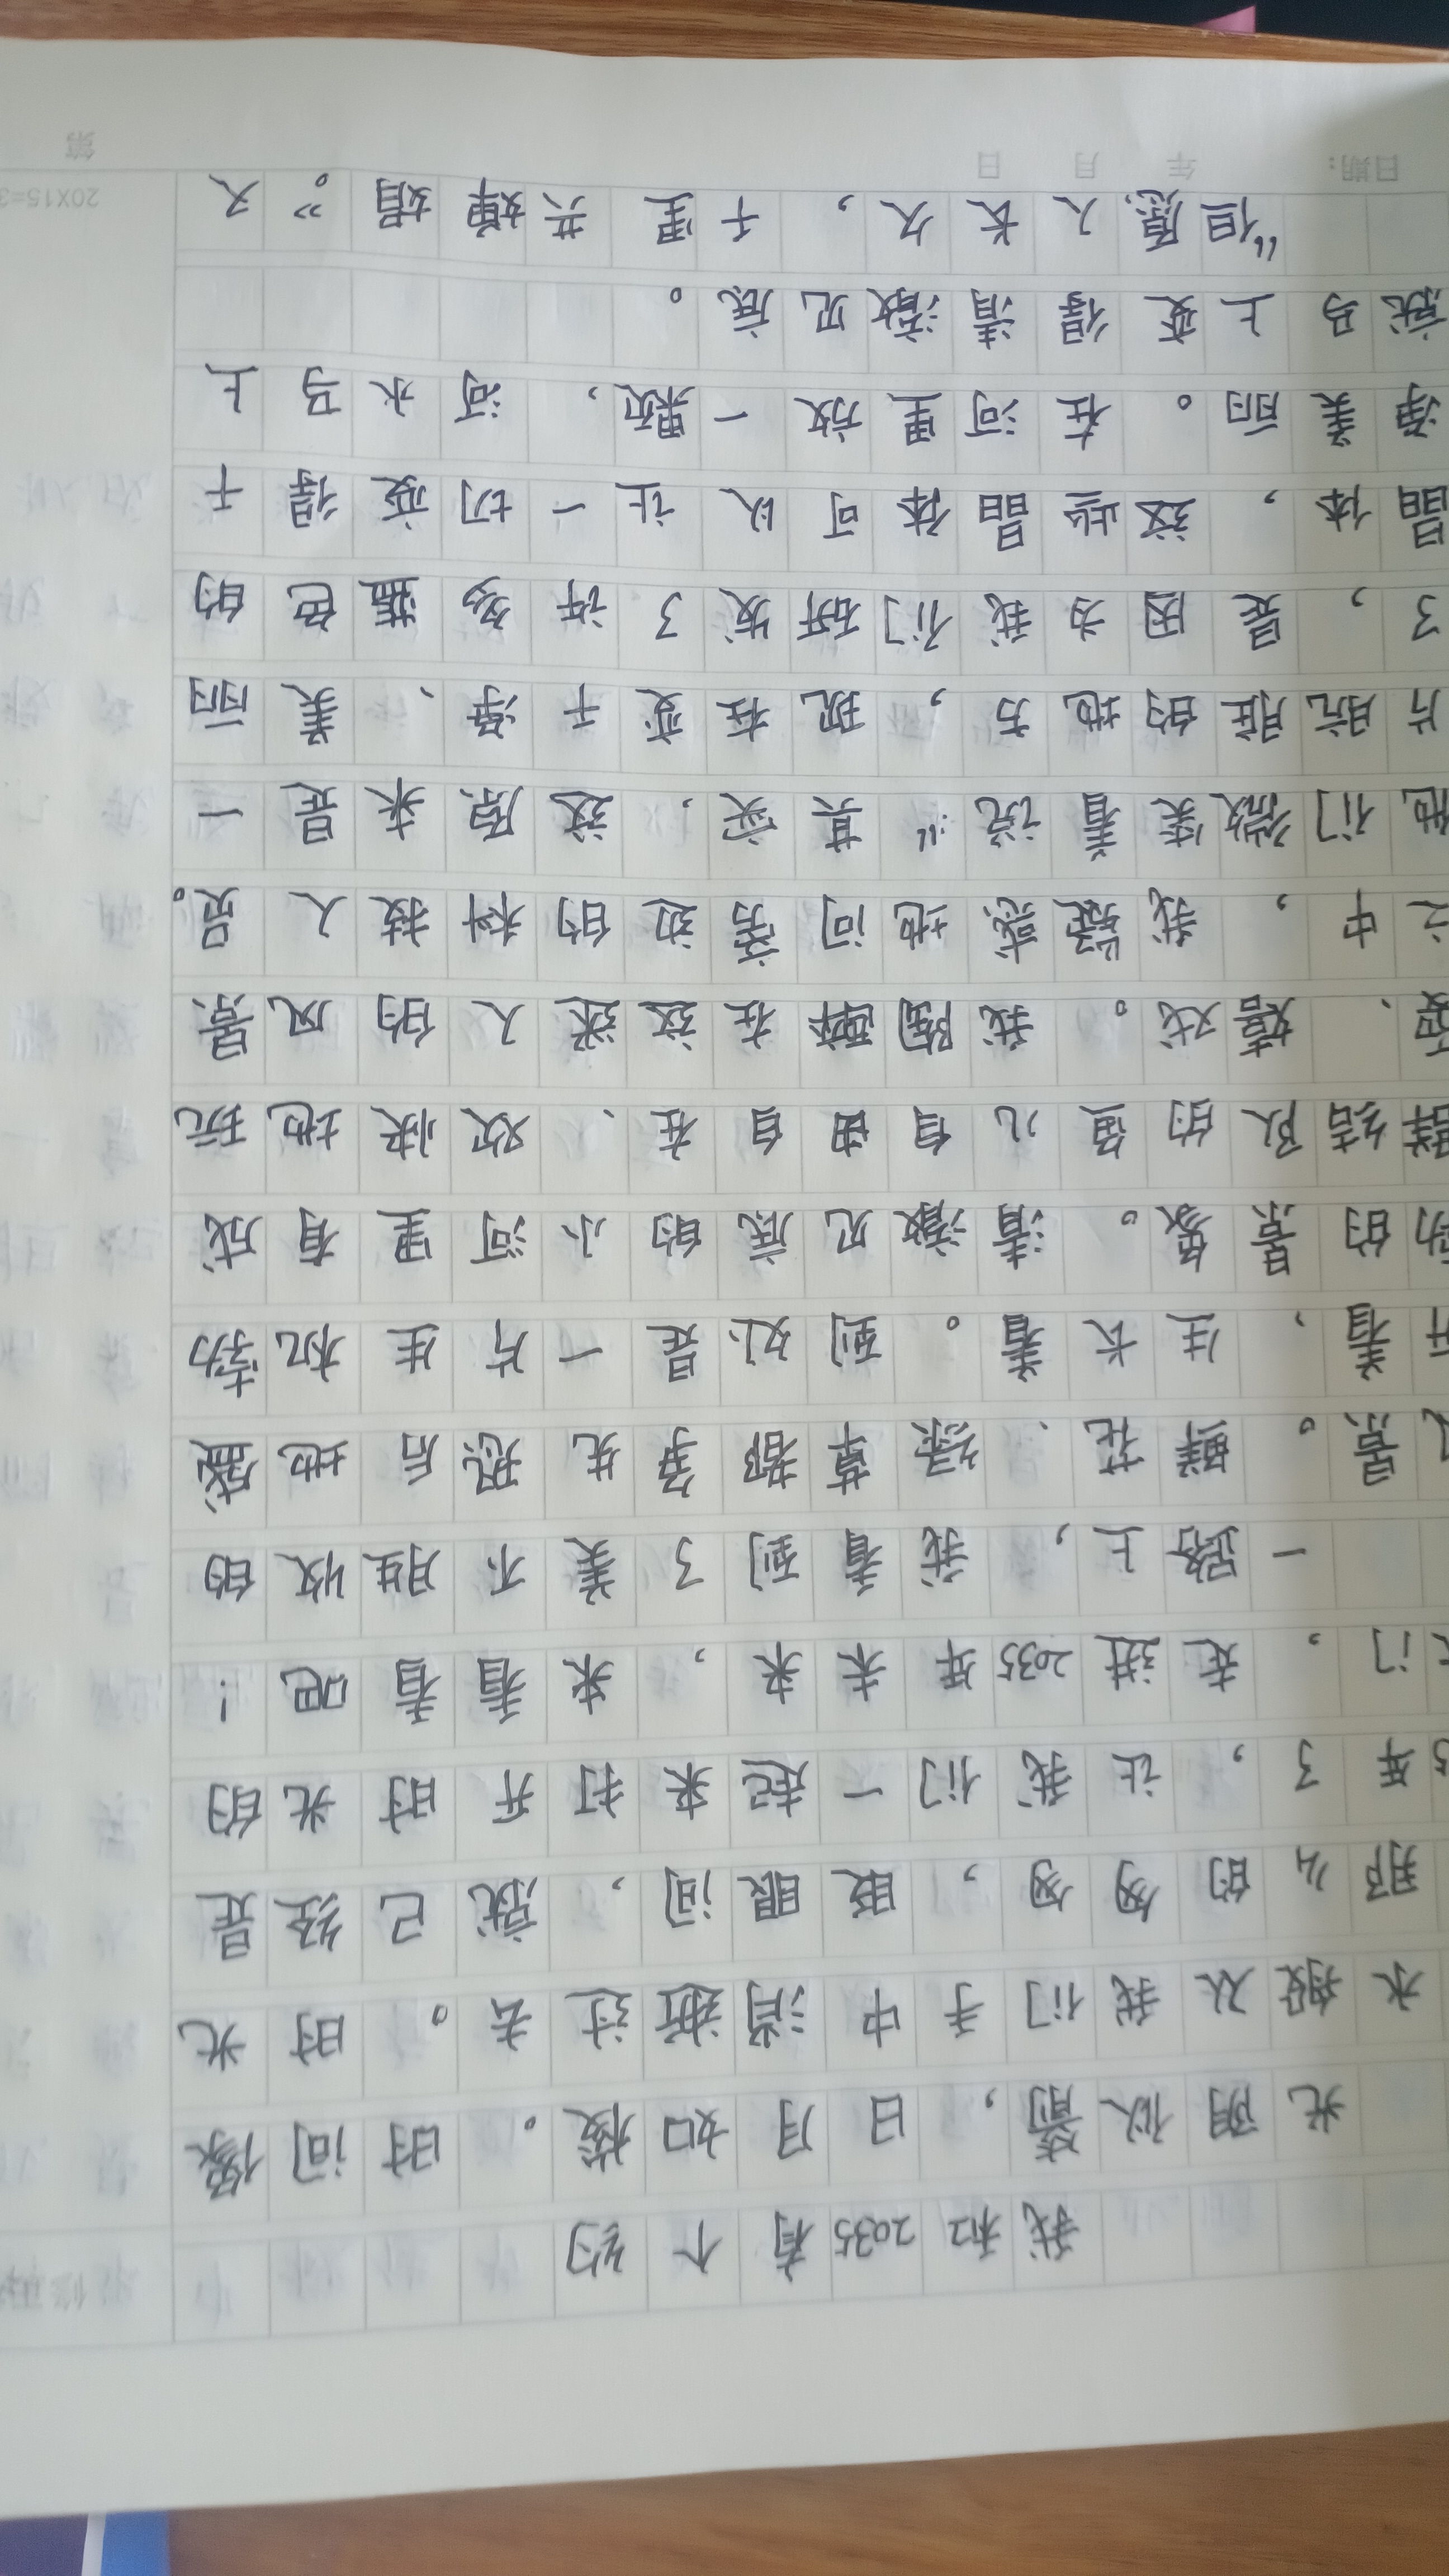 我和2035有个约
光阴似箭，日月如梭。时间像
水般从我们手中消逝过去。时光
那么的匆匆，眨眼间，就已经是
5年了，让我们一起来打开时光的
门，走进2035年未来，来看看吧！
一路上，我看到了美不胜收的
景。鲜花、绿草都争先恐后地盛
开着，生长着。到处是一片生机勃
勃的景象。清澈见底的小河里有成
群结队的鱼儿自由自在、欢快地玩
耍、嬉戏。我陶醉在这迷人的风景
之中，我疑惑地问旁边的科技人员。
他们微笑着说：“其实，这原来是一
片肮脏的地方，现在变干净、美丽
了，是因为我们研发了许多蓝色的
晶体，这些晶体可以让一切变得干
净美丽。在河里放一颗，河水马上
就马上变得清澈见底。
“但愿人长久，千里共婵娟。”又
日期： 年 月 日
20X15=3
第